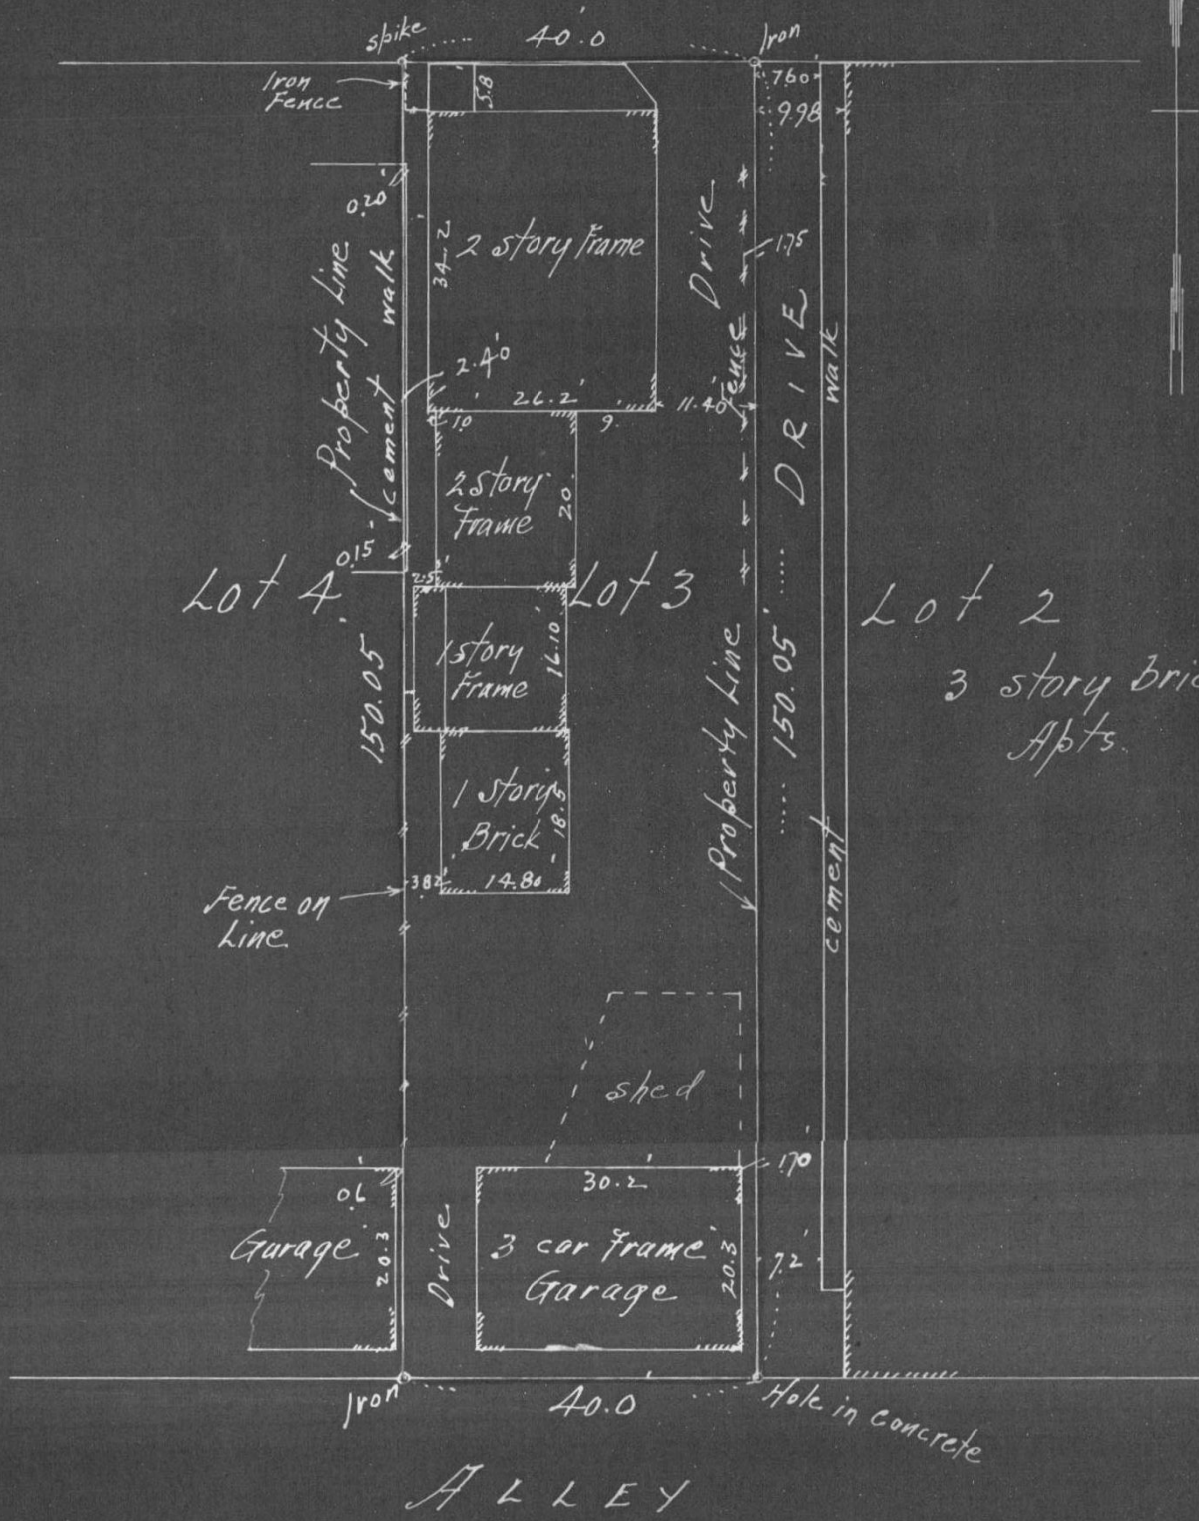 spike
40.0
Iron
Iron
Fence
5.8
7.60
9.98
0.20
Property Line
cement walk
34.2
2 story Frame
Drive
Fence
1.75
DRIVE
walk
2.40
26.2
11.40
10
9.
2 story
Frame
20
0.15
2.5
Lot 4
Lot 3
Lot 2
150.05
1 story
Frame
16.10
Property Line
150.05
3 story Bric
Apts.
1 Story
Brick
18.5
3.82
14.80
Fence on
Line
cement
shed
1.70
0.6
30.2
Garage
20.3
Drive
3 car Frame
Garage
20.3
7.2
Iron
40.0
Hole in concrete
ALLEY